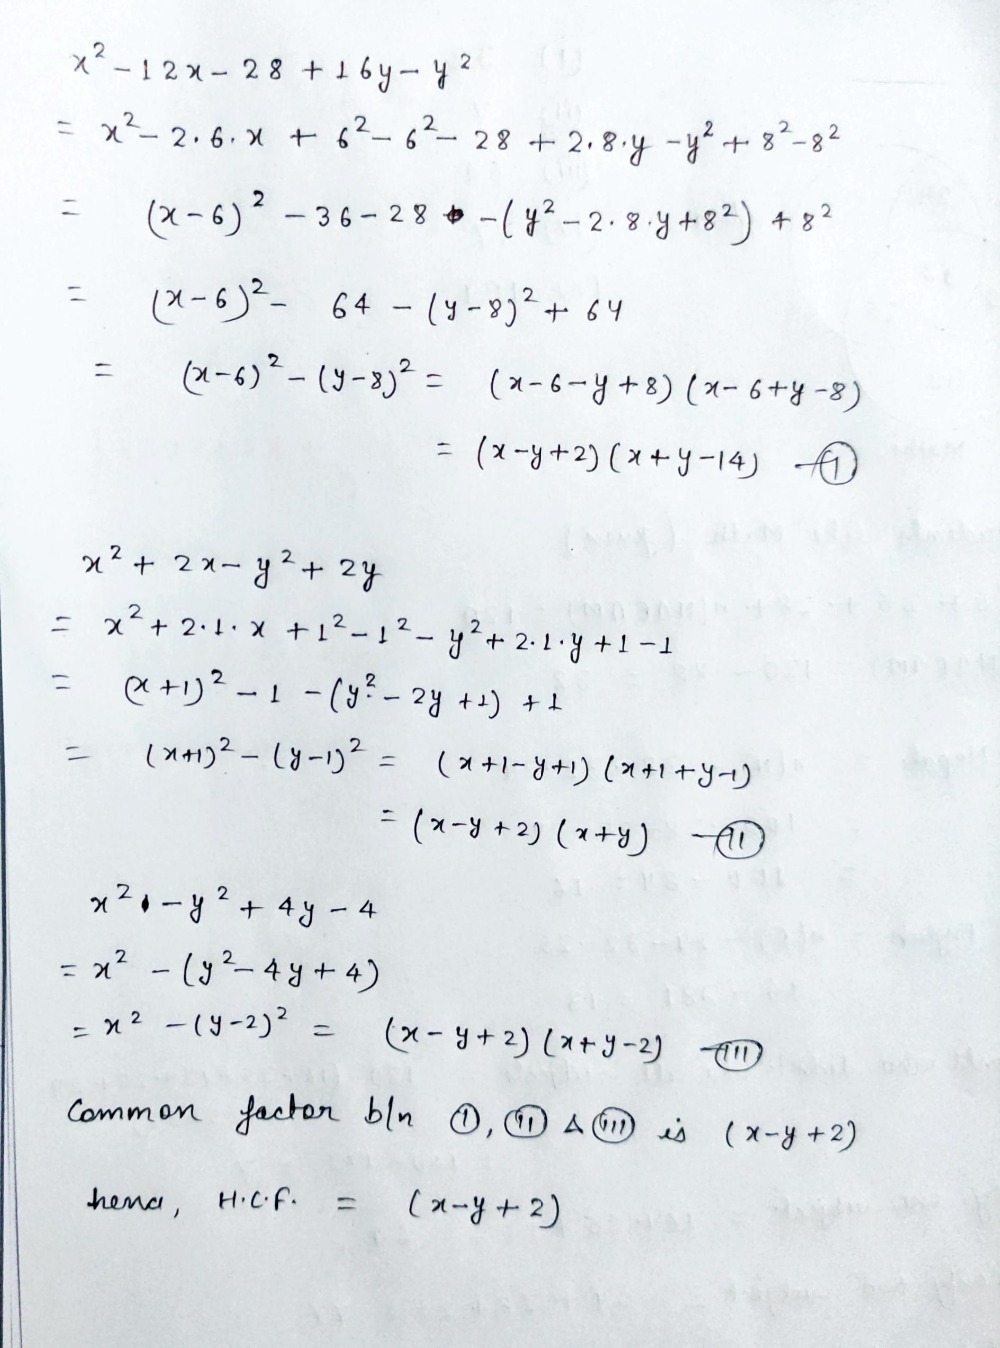 x² - 12x - 28 + 16y - y²
= x² - 2.6.x + 6² - 6² - 28 + 2.8.y - y² + 8² - 8²
= (x-6)² - 36 - 28 - (y² - 2.8.y + 8²) + 8²
= (x-6)² - 64 - (y-8)² + 64
= (x-6)² - (y-8)² = (x-6-y+8) (x-6+y-8)
= (x-y+2) (x+y-14) — (I)
x² + 2x - y² + 2y
= x² + 2.1.x + 1² - 1² - y² + 2.1.y + 1 - 1
= (x+1)² - 1 - (y² - 2y + 1) + 1
= (x+1)² - (y-1)² = (x+1-y+1) (x+1+y-1)
= (x-y+2) (x+y) — (II)
x² - y² + 4y - 4
= x² - (y² - 4y + 4)
= x² - (y-2)² = (x-y+2) (x+y-2) — (III)
Common factor b/n (I), (II) & (III) is (x-y+2)
hence, H.C.F. = (x-y+2)